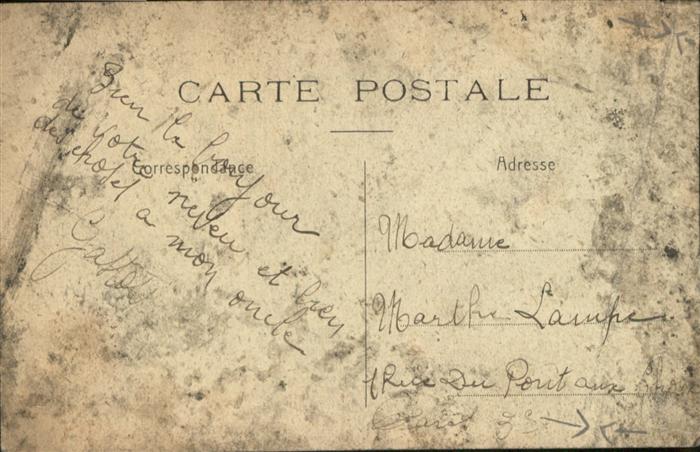 CARTE POSTALE
Correspondance
Bien le bonjour
de votre neveu et bien
des choses a mon oncle
Gaston
Adresse
Madame
Marthe Lampe
Rue Du Pont aux
Paris 3e